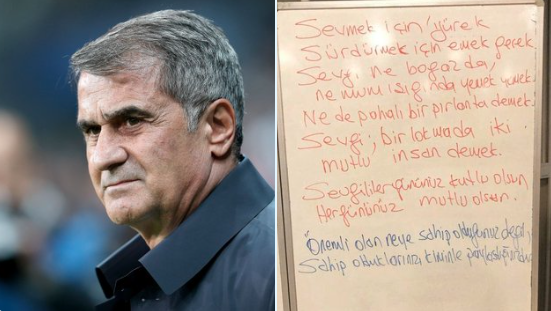 Sevmek için yürek
Sürdürmek için emek gerek
Sevgi ne boğazda,
ne mum ışığında yemek yemek
Ne de pahalı bir pırlanta demek.
Sevgi; bir lokmada iki
mutlu insan demek.
Sevgililer gününüz kutlu olsun
Hergününüz mutlu olsun.
"Önemli olan neye sahip olduğunuz değil,
Sahip olduklarınızı kiminle paylaştığınızdır